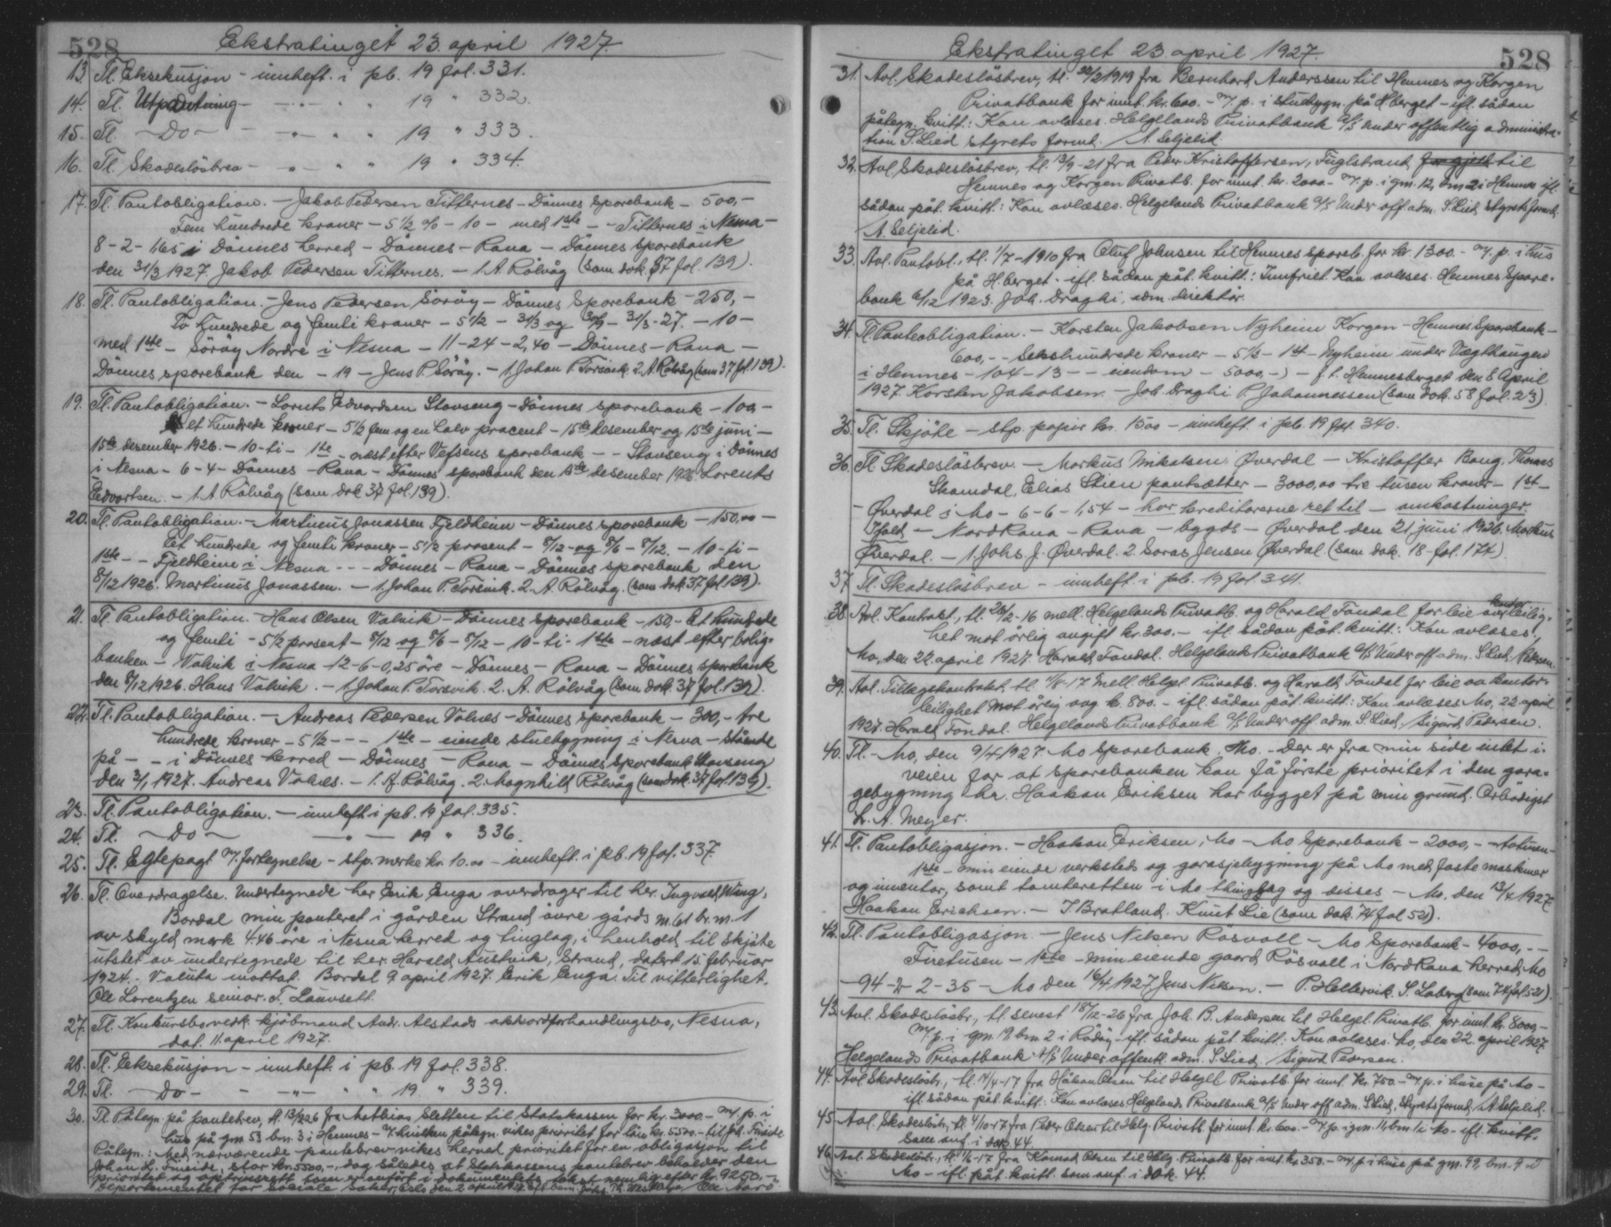 528
Ekstratinget 23. april 1927.
13. Tl. Eksekusjon - innheft. i pb. 19 fol. 331.
14. Tl. Utpantning - " - " 19 " 332.
15. Tl. - Do - " - " 19 " 333.
16. Tl. Skadeslösbrev - " - " 19 " 334.
17. Tl. Pantobligation. - Jakob Pedersen Titternes - Dönnes Sparebank - 500,-
Fem hundrede kroner - 5 1/2 % - 10 - med 1ste - - Titternes i Nesna -
8 - 2 - 1,65 i Dönnes herred - Dönnes - Rana - Dönnes sparebank
den 31/3 1927. Jakob Pedersen Titternes. - 1. A Rölvåg (som dok. 37 fol 139).
18. Tl. Pantobligation. - Jens Pedersen Söröy - Dönnes Sparebank - 250,-
To hundrede og femti kroner - 5 1/2 - 31/3 og 30/9 - 31/3-27. - 10 -
med 1ste - Söröy Nordre i Nesna - 11 - 24 - 2,40 - Dönnes - Rana -
Dönnes sparebank den - 19 - Jens P. Söröy. - 1. Johan P. Torsvik 2. A Rölvåg (som 37 fol 139).
19. Tl. Pantobligation. - Lorents Edvardsen Stavseng - Dönnes Sparebank - 100 -
Et hundrede kroner - 5 1/2 fem og en halv procent - 15de desember og 15de juni -
15de desember 1926. - 10 - ti - 1ste - næst efter Vefsens sparebank - - Stavseng i Dönnes
i Nesna - 6 - 4 - Dönnes - Rana - Dönnes sparebank den 15de desember 1926 Lorents
Edvartsen. - 1. A Rölvåg (som dok 37 fol 139).
20. Tl. Pantobligation. - Martineus Jonassen Fjeldheim - Dönnes sparebank - 150,00 -
Eet hundrede og femti kroner - 5 1/2 prosent - 8/12 og 8/6 - 8/12. - 10 - ti -
1ste - - Fjeldheim i Nesna - - - Dönnes - Rana - Dönnes sparebank den
8/12 1926. Martinius Jonassen. - 1. Johan P. Torsvik. 2. A. Rölvåg. (som dok 37 fol 139).
21. Tl. Pantobligation. Hans Olsen Valvik - Dönnes sparebank - 150,- Et hundrede
og femti - 5 1/2 prosent - 8/12 og 8/6 - 8/12 - 10 - ti - 1ste - næst efter bolig-
banken - Valvik i Nesna - 12 - 6 - 0,25 öre - Dönnes - Rana - Dönnes sparebank
den 8/12 1926. Hans Valvik. - 1. Johan P. Torsvik. 2. A. Rölvåg (som dok. 37 fol. 139).
22. Tl. Pantobligation. - Andreas Pedersen Valnes - Dönnes sparebank - 300,- tre
hundrede kroner - 5 1/2 - - - 1ste - eiende stuebygning i Nesna - stående
på - - i Dönnes herred - Dönnes - Rana - Dönnes sparebank Stavseng
den 3/1 1927. Andreas Valnes. - 1. A. Rölvåg. 2. Magnhild Rölvåg (som dok. 37 fol 139).
23. Tl. Pantobligation. - innheft i pb. 19 fol. 335.
24. Tl. - Do - " - 19 " 336.
25. Tl. Egtepagt m/ fortegnelse - stp. merke kr. 10.00 - innheft. i pb. 19 fol. 337.
26. Tl. Overdragelse. Undertegnede her Erik Enga overdrager til her. Ingvald Wing,
Bordal min panteret i gården Strand övre gårds nr. 61 br. nr. 1
av skyld mark 4.46 öre i Nesna herred og tinglag, i henhold til skjöte
utstet av undertegnede til her Harald Austvik, Strand, datert 15 februar
1924. Valuta mottat. Bordal 9 april 1927. Erik Enga. Til vitterlighet.
Ole Lorentzen senior. T. Lauvsett.
27. Tl. Konkursbo vedk. kjöbmand Andr. Alstads akkordforhandlingsbo, Nesna,
dat. 11. april 1927.
28. Tl. Eeksekusjon - innheft. i pb. 19 fol. 338.
29. Tl. - Do - " - " 19 " 339.
30. Tl. Påtegn. på pantebrev, tl. 13/9 26 fra Mathias Sletten til Statskassen for kr. 3000 - m/ p. i
hus på gnr. 53 bnr. 3 i Hemnes - hvilken påtegn. vikes prioritet for lån kr. 5500 -
Påtegn.: Ved nærværende pantebrev vikes herved prioritet for en obligasjon til
Johan K. Fineide, stor kr. 5500,-, dog således at Statskassens pantebrev beholder den
prioritet og optrinsrett som er anført i dokumentets tekst nemlig efter kr. 9250,-
departementet for sociale saker, Oslo den 2 april 1927
528
Ekstratinget 23 april 1927.
31. Avl. Skadeslösbrev, tl. 20/2 1919 fra Bernhard Anderssen til Hemnes og Korgen
Privatbank for innt. kr. 600. - m/ p. i stuebygn. på Hberget - ifl. sådan
påtegn. kvitt: Kan avlöses. Helgelands Privatbank A/S Under offentlig administra-
tion S. Lied styrets formd. A. Seljelid.
32. Avl. Skadeslösbrev, tl. 13/9-21 fra Peder Kristoffersen, Fuglstrand til
Hemnes og Korgen Privatb. for innt. kr. 2000 - m/ p. i gnr. 12, bnr. 2 i Hemnes ifl.
sådan påt. kvitt.: Kan avlöses. Helgelands Privatbank A/S Under off adm. S. Lied, styrets formd.
A. Seljelid.
33. Avl. Pantobl., tl. 1/7-1910 fra Oluf Johnsen til Hemnes spareb. for kr. 1300. - m/ p. i hus
på H.berget. - ifl. sådan påt. kvitt: Innfriet. Kan avlöses. Hemnes Spare-
bank 6/12 1923. Joh. Draghi adm. direktör.
34. Tl. Panteobligation. - Korsten Jakobsen Nyheim Korgen - Hemnes Sparebank -
600,- - Sekshundrede kroner - 5 1/2 - 1st - Nyheim under Vægthaugen
i Hemnes - 104 - 13 - - eiendom - 5000 -) - f. t. Hemnesberget den 8 April
1927. Korsten Jakobsen. Joh. Draghi P. Johannessen (som dok. 58 fol. 23).
35. Tl. Skjöte - stp. papir kr. 1500 - innheft. i pb. 19 fol. 340.
36. Tl. Skadeslösbrev. - Markus Nikolsen Øverdal - Kristoffer Bang, Thomas
Skamdal, Elias Stien pantsætter - 3000,00 tre tusen kroner - 1st -
- Øverdal i Mo - 6 - 6 - 1,54 - har kreditorerne ret til - omkostninger
Tjeld - NordRana - Rana - bygds - Øverdal den 21 juni 1926. Markus
Øverdal. - 1. Johs J. Øverdal. 2. Soras Jensen Øverdal (som dok. 18 fol. 174).
37. Tl. Skadeslösbrev - innheft. i pb. 19 fol. 341.
38. Avl. Kontrakt, tl. 28/2-16 mell. Helgelands Privatb. og Harald Fondal for leie av kontorleilig-
het mot årlig avgift kr. 300. - ifl. sådan påt. kvitt: Kan avlöses!
Mo, den 22. april 1927. Harald Fondal. Helgelands Privatbank A/S Under off adm. S. Lied,
39. Avl. Tillegskontrakt, tl. 7/8-17 mell. Helgel. Privatb. og Harald Fondal for leie av kontor-
leilighet mot årlig avg. kr. 800. - ifl. sådan påt. kvitt: Kan avlöses Mo, 22 april
1927. Harald Fondal. Helgelands Privatbank A/S Under off adm. S. Lied, Sigurd Pedersen.
40. Tl. - Mo, den 9/4 1927. Mo Sparebank, Mo. - Der er fra min side intet i
veien for at sparebanken kan få förste prioritet i den gara-
gebygning hr. Haakon Eriksen har bygget på min grund. Ærbödigst
L. A. Meyer.
41. Tl. Pantobligasjon. - Haakon Eriksen, Mo - Mo Sparebank - 2000,- - totusen -
1ste - min eiende verksted og garasjebygning på Mo med faste maskiner
og inventar, samt tomteretten i Mo thinglag og disses - Mo, den 13/4 1927
Haakon Erichsen. - T. Bratland. Knut Lie (som dok. 74 fol 52).
42. Tl. Pantobligasjon - Jens Nilsen Rösvoll - Mo Sparebank - 4000,- - -
Firetusen - 1ste - min eiende gaard Rösvoll i NordRana herred, Mo
- 94 - 2 - 2 - 35 - Mo den 16/4 1927. Jens Nilsen. - P. Hellervik. S. Loberg (som 74 fol 52)
43. Avl. Skadeslösbr., tl. senest 18/12-26 fra Joh. B. Andersen til Helgel. Privatb. for innt. kr. 8000,-
m/ p. i gnr. 19 bnr. 2 i Rödöy - ifl. sådan påt. kvitt: Kan avlöses. Mo, den 22. april 1927.
Helgelands Privatbank A/S Under offentl. adm. S. Lied, Sigurd Pedersen.
44. Avl. Skadeslösbr., tl. 14/4-17 fra Håkon Olsen til Helgel. Privatb. for innt. kr. 750. - m/ p. i huse på Mo -
ifl. sådan påt. kvitt: Kan avlöses Helgelands Privatbank A/S Under off adm. S. Lied, Styrets formd. A. Seljelid.
45. Avl. Skadeslösbr., tl. 4/10-17 fra Peder Olsen til Helg. Privatb. for innt. kr. 600. - m/ p. i gnr. bnr. i Mo - ifl. kvitt.
som anf. i dok. 44.
46. Avl. Skadeslösbr., tl. 1/6-17 fra Konrad Olsen til Helg. Privatb. for innt. kr. 350. - m/ p. i huse på gnr. 99, bnr. 9 i
Mo - ifl. påt. kvitt. som anf. i dok. 44.